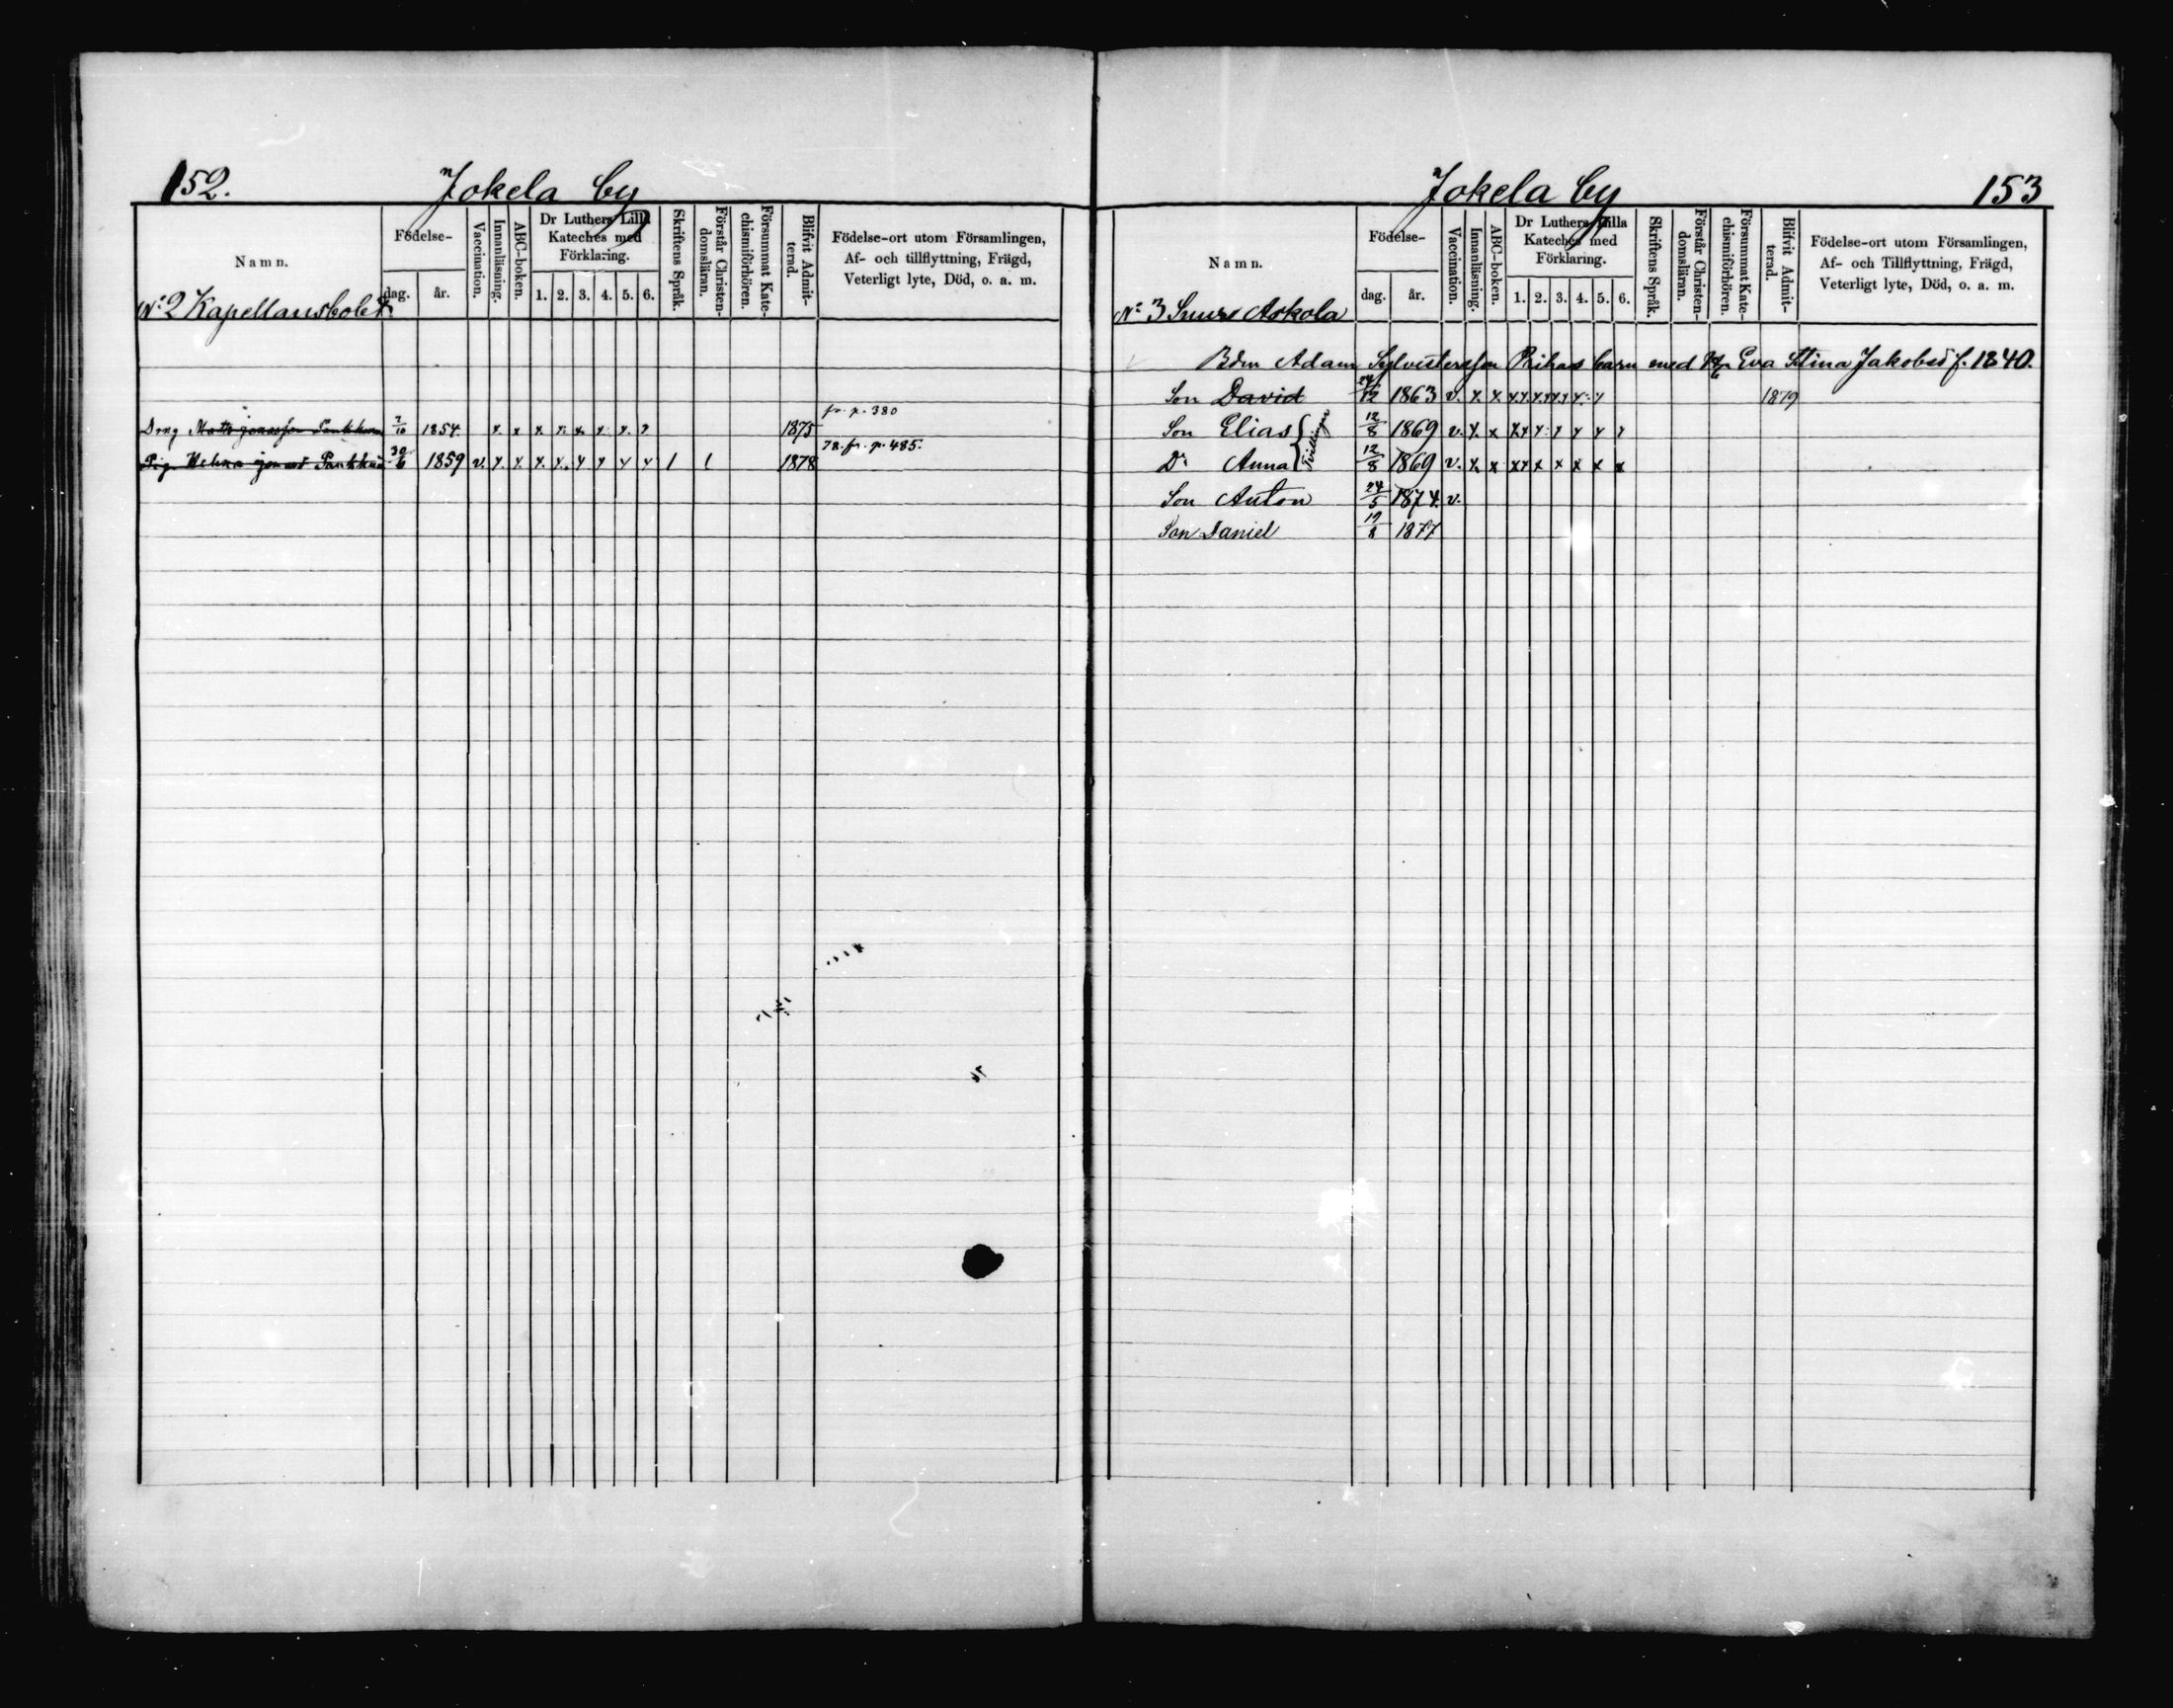 152.
Jokela by
Namn.
Födelse-
dag.
år.
Vaccination.
Innanläsning.
ABC-boken.
Dr Luthers Lilla
Kateches med
Förklaring.
1. 2. 3. 4. 5. 6.
Skriftens Språk.
Förstår Christen-
domsläran.
Försummat Kate-
chismiförhören.
Blifvit Admit-
terad.
Födelse-ort utom Församlingen,
Af- och tillflyttning, Frägd,
Veterligt lyte, Död, o. a. m.
No 2 Kapellansbolet
fr. p. 380
Dräng Matts 7/10 1854. x. x x x. x. x x. x 1875
78. fr. p. 485.
Pig. Helena 30/6 1859 v. x. x. x. x. x x x x 1 1 1878
Jokela by
153
Namn.
Födelse-
dag.
år.
Vaccination.
Innanläsning.
ABC-boken.
Dr Luthers Lilla
Kateches med
Förklaring.
1. 2. 3. 4. 5. 6.
Skriftens Språk.
Förstår Christen-
domsläran.
Försummat Kate-
chismiförhören.
Blifvit Admit-
terad.
Födelse-ort utom Församlingen,
Af- och Tillflyttning, Frägd,
Veterligt lyte, Död, o. a. m.
No 3 Suur Askola
Bdn Adam Sylvestersson Prihas barn med Eva Stina Jakobsd f. 1840.
Son David 24/12 1863 v. x. x x.x. x.x x.x x. x 1879
Son Elias 12/8 1869 v. x. x x x x x x x x
Tvillingar
Dr Anna 12/8 1869 v. x. x x x x x x x x
Son Anton 24/5 1874. v.
Son Daniel 19/8 1877